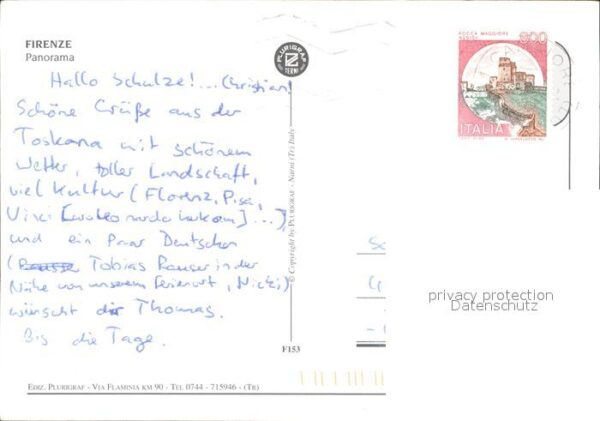 FIRENZE
Panorama
PLURIGRAF
TERNI
ROCCA MAGGIORE
ASSISI
800
ITALIA
Hallo Schulze!...(Christian)
Schöne Grüße aus der
Toskana mit schönem
Wetter, toller Landschaft,
viel Kultur (Florenz, Pisa,
Vinci [wo Leonardo herkom]...)
und ein Paar Deutschen
( Tobias in der
Nähe von unserem Ferienort, )
wünscht dir Thomas.
Bis die Tage.
© Copyright by PLURIGRAF - Narni (Tr) Italy
F153
EDIZ. PLURIGRAF - VIA FLAMINIA KM 90 - TEL 0744 - 715946 - (TR)
privacy protection
Datenschutz